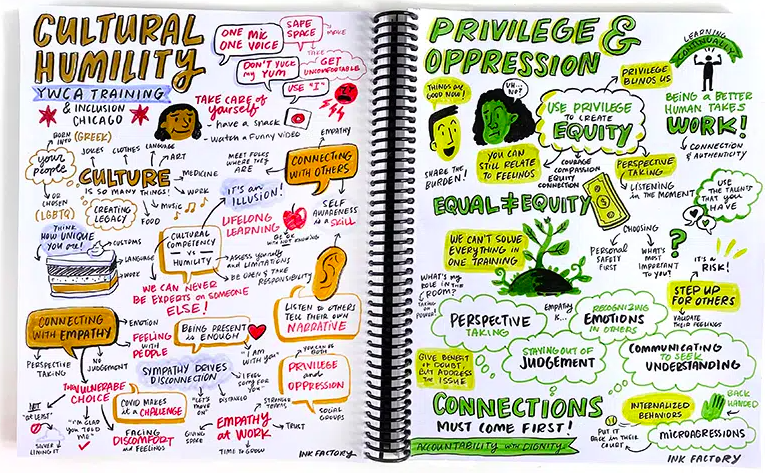 CULTURAL
HUMILITY
YWCA TRAINING
& INCLUSION
CHICAGO
ONE MIC
ONE VOICE
SAFE
SPACE
MAKE
TAKE
DON'T YUCK
MY YUM
GET
UNCOMFORTABLE
USE "I"
TAKE CARE of
yourself
- have a snack
- watch a funny video
BORN
INTO
(GREEK)
your
people
OR
CHOSEN
(LGBTQ)
JOKES
CLOTHES
LANGUAGE
ART
MEDICINE
WORK
MUSIC
FOOD
CULTURE
IS SO MANY THINGS!
CREATING
LEGACY
MEET FOLKS
WHERE THEY
ARE
EMPATHY
CONNECTING
WITH OTHERS
it's an
ILLUSION!
LIFELONG
LEARNING
BE OK
WITH NOT KNOWING
SELF
AWARENESS
is a SKILL
THINK
HOW UNIQUE
YOU are!
CUSTOMS
LANGUAGE
WORK
CULTURAL
COMPETENCY
vs
HUMILITY
ASSESS yourself
and LIMITATIONS
BE OPEN & TAKE
RESPONSIBILITY
WE CAN NEVER
BE EXPERTS ON SOMEONE
ELSE!
LISTEN to OTHERS
TELL THEIR OWN
NARRATIVE
CONNECTING
WITH EMPATHY
EMOTION
FEELING
WITH
PEOPLE
PERSPECTIVE
TAKING
NO
JUDGEMENT
BEING PRESENT
is ENOUGH
"I AM
WITH YOU"
SYMPATHY DRIVES
DISCONNECTION
"LET'S
MOVE ON"
DISTANCED
I FEEL
SORRY FOR
YOU"
YOU CAN BE
BOTH
PRIVILEGE
and
OPPRESSION
SOCIAL
GROUPS
THE VULNERABLE
CHOICE
NOT
"AT LEAST"
SILVER
LINING IT
"I'M GLAD
YOU TOLD
ME"
COVID MAKES
it a CHALLENGE
FACING
DISCOMFORT
and FEELINGS
GIVING
SPACE
EMPATHY
at WORK
STRONGER
TEAMS
TRUST
TIME to GROW
INK FACTORY
PRIVILEGE &
OPPRESSION
LEARNING
CONTINUALLY
THINGS ARE
GOOD NOW!
UH...
NO?
PRIVILEGE
BLINDS US
USE PRIVILEGE
to CREATE
EQUITY
BEING A BETTER
HUMAN TAKES
WORK!
CONNECTION
& AUTHENTICITY
SHARE THE
BURDEN!
YOU CAN
STILL RELATE
to FEELINGS
COURAGE
COMPASSION
EQUITY
CONNECTION
PERSPECTIVE
TAKING
LISTENING
in the MOMENT
USE
THE TALENTS
THAT YOU
HAVE
EQUAL ≠ EQUITY
WE CAN'T SOLVE
EVERYTHING IN
ONE TRAINING
CHOOSING
PERSONAL
SAFETY
FIRST
WHAT'S
MOST
IMPORTANT
to YOU?
?
IT'S A
RISK!
STEP UP
FOR OTHERS
VALIDATE
THEIR FEELINGS
WHAT'S MY
ROLE IN THE
ROOM?
TAKING
ON POWER!
PERSPECTIVE
TAKING
EMPATHY
IS...
RECOGNIZING
EMOTIONS
IN OTHERS
STAYING OUT OF
JUDGEMENT
COMMUNICATING
to SEEK
UNDERSTANDING
GIVE BENEFIT
of DOUBT,
BUT ADDRESS
THE ISSUE
CONNECTIONS
MUST COME FIRST!
ACCOUNTABILITY with DIGNITY
INTERNALIZED
BEHAVIORS
BACK
HANDED
PUT IT
BACK IN THEIR
COURT
MICROAGRESSIONS
INK FACTORY